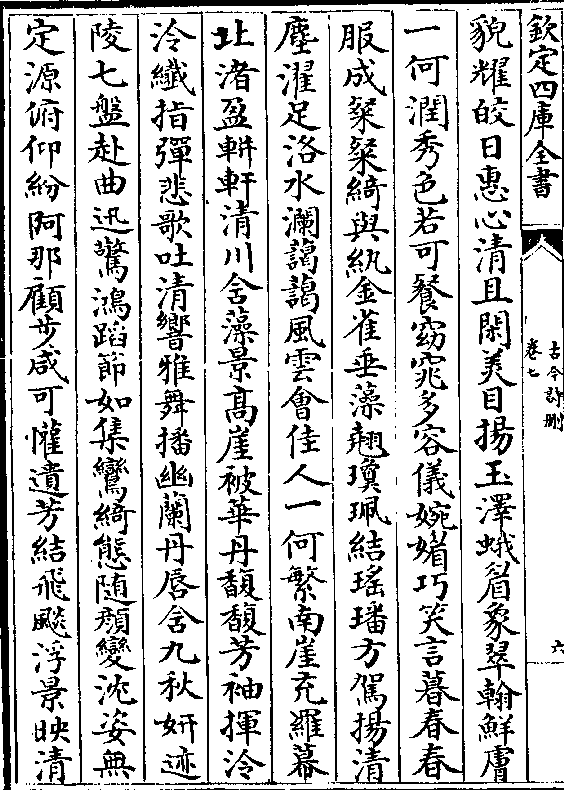 欽定四庫全書
古今詩刪
卷七
六
貌耀皎日惠心清且閑美目揚玉澤蛾眉象翠翰鮮膚
一何潤秀色若可餐窈窕多容儀婉媚巧笑言暮春春
服成粲粲綺與紈金雀垂藻翹瓊珮結瑤璠方駕揚清
塵濯足洛水瀾藹藹風雲會佳人一何繁南崖充羅幕
北渚盈軿軒清川含藻景高崖被華丹馥馥芳袖揮泠
泠纖指彈悲歌吐清響雅舞播幽蘭丹唇含九秋妍迹
陵七盤赴曲迅驚鴻蹈節如集鸞綺態随顔變沈姿無
定源俯仰紛阿那顧步咸可懽遺芳結飛飈浮景映清